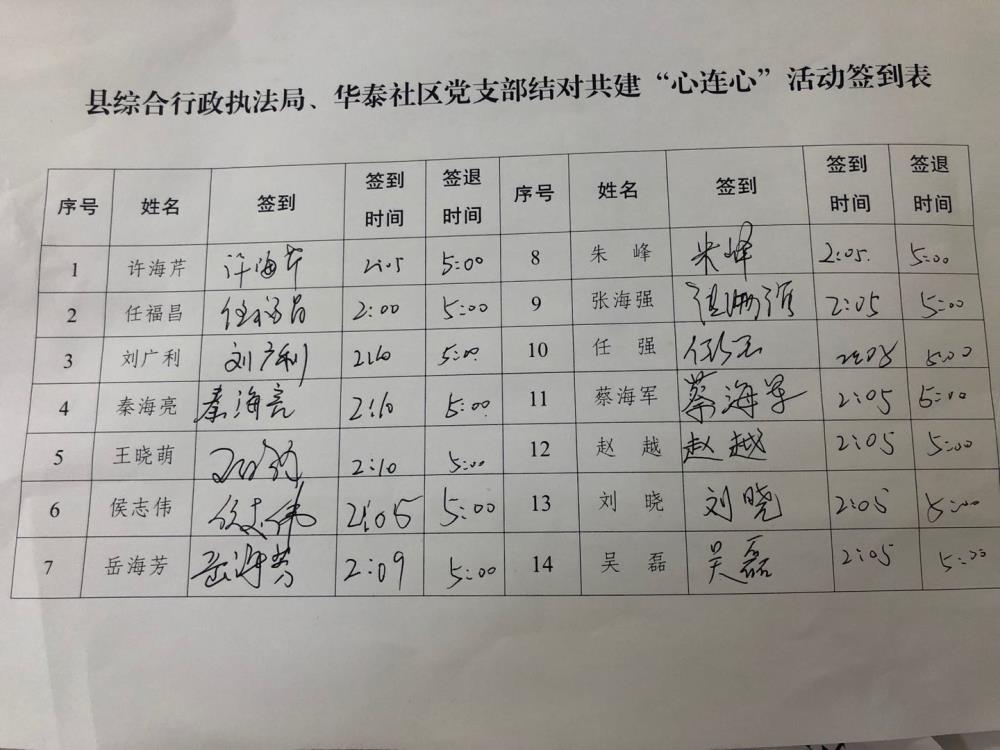 县综合行政执法局、华泰社区党支部结对共建“心连心”活动签到表
序号 姓名 签到 签到时间 签退时间 序号 姓名 签到 签到时间 签退时间
1 许海芹 许海芹 2:05 5:00 8 朱峰 朱峰 2:05. 5:00
2 任福昌 任福昌 2:00 5:00 9 张海强 张海强 2:05 5:00
3 刘广利 刘广利 2:10 5:00 10 任强 任强 2:05 5:00
4 秦海亮 秦海亮 2:10 5:00 11 蔡海军 蔡海军 2:05 5:00
5 王晓萌 2:10 5:00 12 赵越 赵越 2:05 5:00
6 侯志伟 侯志伟 2:05 5:00 13 刘晓 刘晓 2:05 5:00
7 岳海芳 岳海芳 2:09 5:00 14 吴磊 吴磊 2:05 5:00